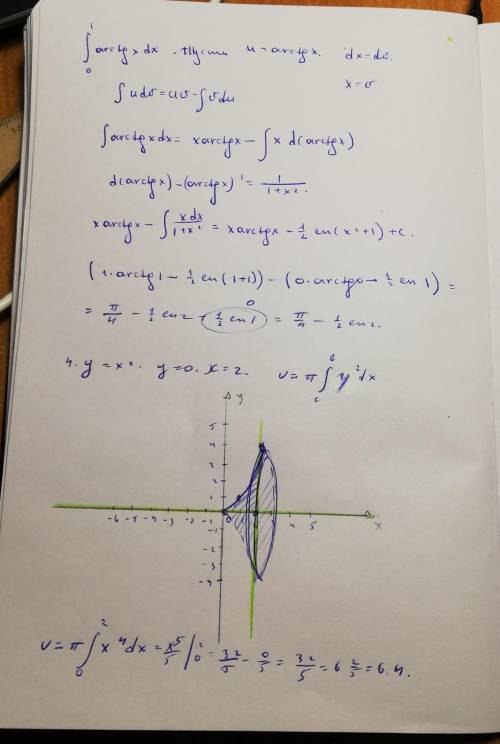 ∫₀¹ arctg x dx. Пусть u = arctg x. dx = dv.
x = v
∫ u dv = uv - ∫ v du
∫ arctg x dx = x arctg x - ∫ x d(arctg x)
d(arctg x) - (arctg x)' = 1/(1+x²).
x arctg x - ∫ x dx/(1+x²) = x arctg x - 1/2 ln(x²+1) + c.
(1·arctg 1 - 1/2 ln(1+1)) - (0·arctg 0 - 1/2 ln 1) =
0
= π/4 - 1/2 ln 2 + 1/2 ln 1 = π/4 - 1/2 ln 2.
4. y = x². y = 0. x = 2. V = π ∫ y² dx
y
5
4
3
2
1
-6 -5 -4 -3 -2 -1 0 4 5 x
-1
-2
-3
-4
V = π ∫₀² x⁴ dx = x⁵/5 |₀² = 32/5 - 0/5 = 32/5 = 6 2/5 = 6.4.